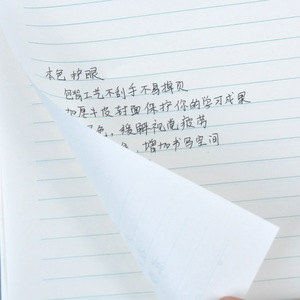 本色护眼
包装工艺不刮手不易掉页
加厚牛皮封面保护你的学习成果
色,缓解视觉疲劳
,增加书写空间